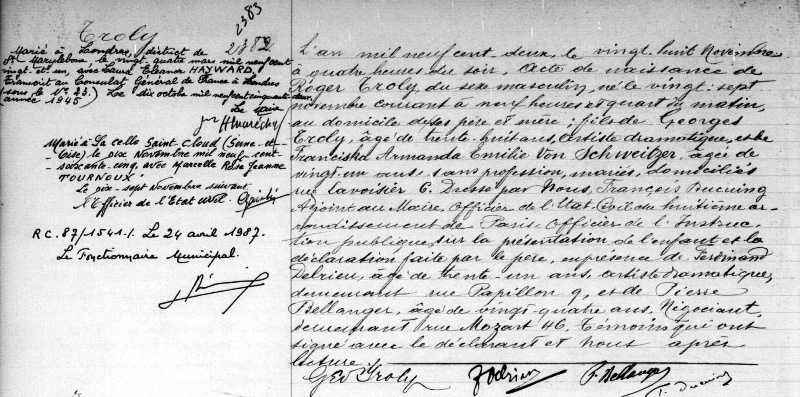 Troly
2383
2382
Marié à Londres, district de
St Marylebone, le vingt quatre mai mil neuf cent
vingt-et-un, avec Laura Eleanor HAYWARD,
transcrit au Consulat Général de France à Londres
sous le N° 23.) Le dix octobre mil neuf cent cinquante deux
année 1945
Le Maire
Marié à La Celle Saint-Cloud (Seine-et-
Oise) le dix Novembre mil neuf cent-
soixante-cinq, avec Marcelle Rose Jeanne
TOURNOUX
Le dix-sept Novembre suivant
L'Officier de l'Etat civil
RC. 87/1541-1. Le 24 avril 1987.
Le Fonctionnaire Municipal.
L'an mil neuf cent deux, le vingt huit Novembre
à quatre heures du soir, Acte de naissance de
Roger Troly du sexe masculin, né le vingt-sept
novembre courant à neuf heures et quart du matin,
au domicile de ses père et mère; fils de Georges
Troly, âgé de trente-huit ans, artiste dramatique, et de
Franciska Armanda Emilie Von Schweitzer, âgée de
vingt-un ans, sans profession, mariés, domiciliés
rue Lavoisier 6. Dressé par Nous, François Ducuing
Adjoint au Maire, Officier de l'Etat-Civil du huitième ar-
rondissement de Paris, Officier de l'Instruc-
tion publique, sur la présentation de l'enfant et la
déclaration faite par le père, en présence de Ferdinand
Delrieu, âgé de trente-un ans, artiste dramatique,
demeurant rue Papillon 9, et de Pierre
Bellanger, âgé de vingt-quatre ans, Négociant,
demeurant rue Mozart 46, Témoins qui ont
signé avec le déclarant et Nous après
lecture.
Geo Troly F Delrieu P. Bellanger
F. Ducuing